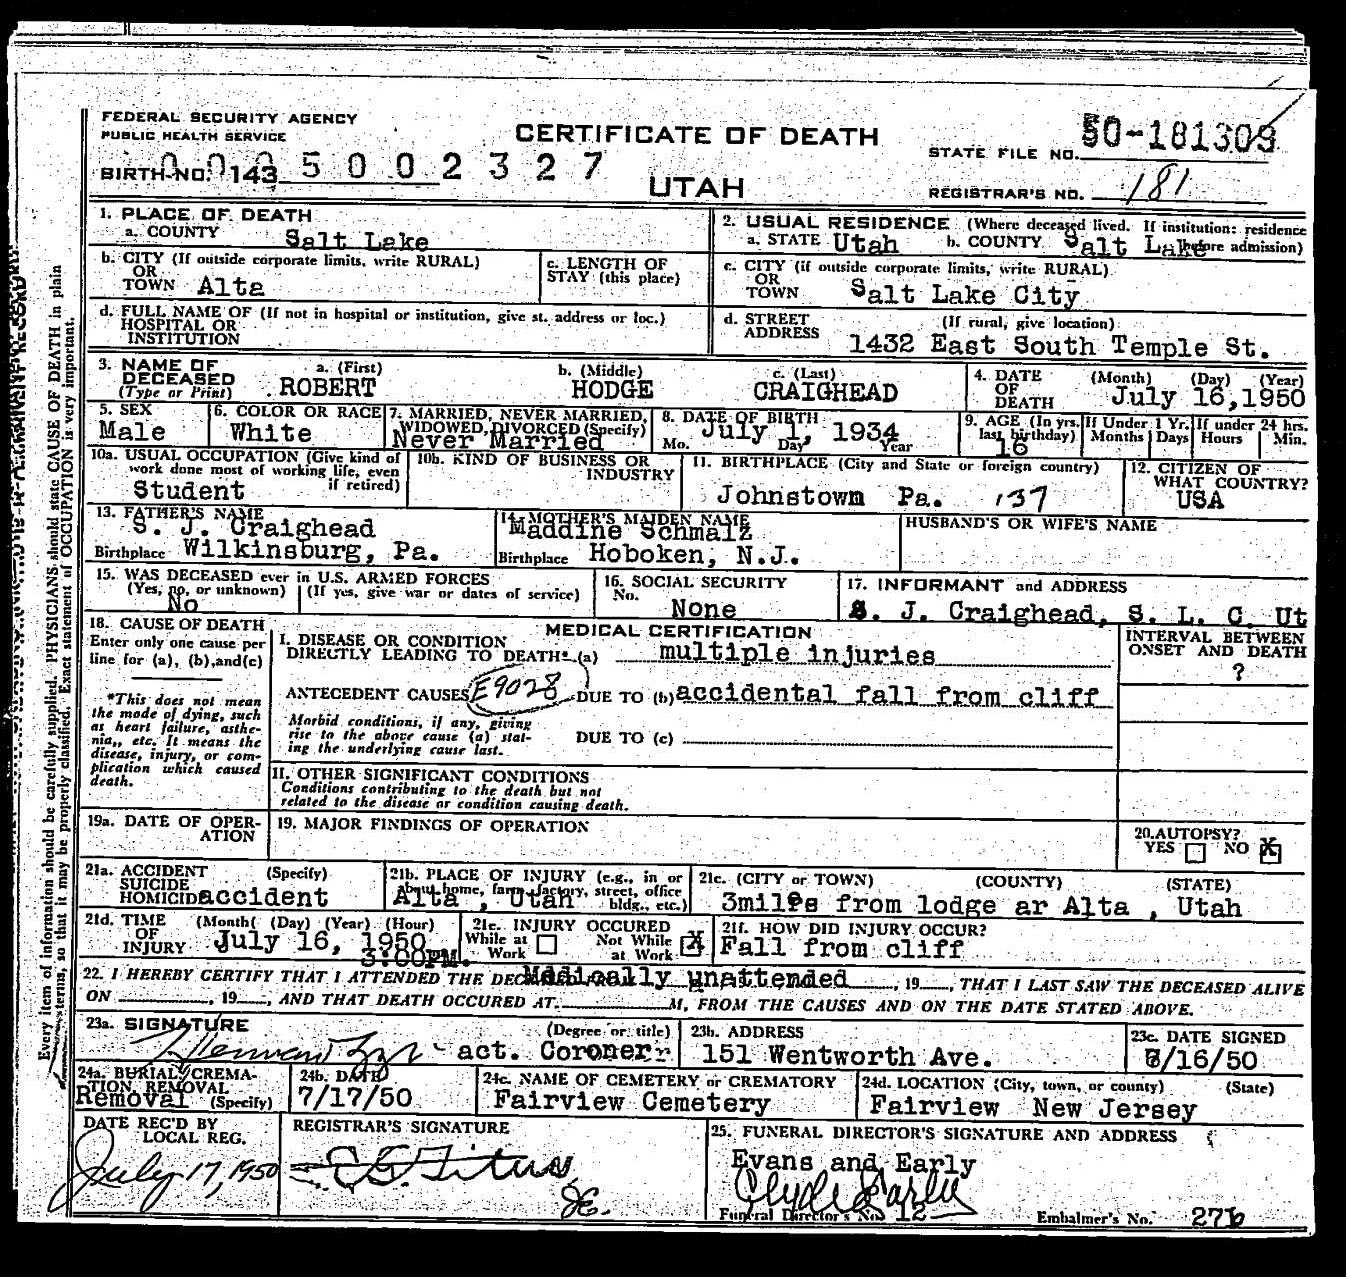 FEDERAL SECURITY AGENCY
PUBLIC HEALTH SERVICE
CERTIFICATE OF DEATH
UTAH
STATE FILE NO. 50-181309
BIRTH NO. 143 5 0 0 2 3 2 7
REGISTRAR'S NO. 181
1. PLACE OF DEATH
a. COUNTY Salt Lake
2. USUAL RESIDENCE (Where deceased lived. If institution: residence before admission)
a. STATE Utah b. COUNTY Salt Lake
b. CITY (If outside corporate limits, write RURAL)
OR
TOWN Alta
c. LENGTH OF
STAY (this place)
c. CITY (if outside corporate limits, write RURAL)
OR
TOWN Salt Lake City
d. FULL NAME OF (If not in hospital or institution, give st. address or loc.)
HOSPITAL OR
INSTITUTION
d. STREET (If rural, give location)
ADDRESS 1432 East South Temple St.
3. NAME OF
DECEASED
(Type or Print)
a. (First) ROBERT
b. (Middle) HODGE
c. (Last) CRAIGHEAD
4. DATE
OF
DEATH
(Month) (Day) (Year)
July 16,1950
5. SEX
Male
6. COLOR OR RACE
White
7. MARRIED, NEVER MARRIED,
WIDOWED, DIVORCED (Specify)
Never Married
8. DATE OF BIRTH
July 1, 1934
Mo. Day Year
9. AGE (In yrs. last birthday)
16
If Under 1 Yr.
Months Days
If under 24 hrs.
Hours Min.
10a. USUAL OCCUPATION (Give kind of
work done most of working life, even
if retired)
Student
10b. KIND OF BUSINESS OR
INDUSTRY
11. BIRTHPLACE (City and State or foreign country)
Johnstown Pa. 137
12. CITIZEN OF
WHAT COUNTRY?
USA
13. FATHER'S NAME
S. J. Craighead
Birthplace Wilkinsburg, Pa.
14. MOTHER'S MAIDEN NAME
Maddine Schmalz
Birthplace Hoboken, N.J.
HUSBAND'S OR WIFE'S NAME
15. WAS DECEASED ever in U.S. ARMED FORCES
(Yes, no, or unknown) (If yes, give war or dates of service)
No
16. SOCIAL SECURITY
No.
None
17. INFORMANT and ADDRESS
S. J. Craighead, S. L. C. Ut
18. CAUSE OF DEATH
Enter only one cause per
line for (a), (b),and(c)
*This does not mean
the mode of dying, such
as heart failure, asthe-
nia,, etc. It means the
disease, injury, or com-
plication which caused
death.
MEDICAL CERTIFICATION
I. DISEASE OR CONDITION
DIRECTLY LEADING TO DEATH* (a) multiple injuries
ANTECEDENT CAUSES E9028 DUE TO (b) accidental fall from cliff
Morbid conditions, if any, giving
rise to the above cause (a) stat-
ing the underlying cause last.
DUE TO (c)
II. OTHER SIGNIFICANT CONDITIONS
Conditions contributing to the death but not
related to the disease or condition causing death.
INTERVAL BETWEEN
ONSET AND DEATH
?
19a. DATE OF OPER-
ATION
19. MAJOR FINDINGS OF OPERATION
20. AUTOPSY?
YES NO X
21a. ACCIDENT (Specify)
SUICIDE
HOMICID accident
21b. PLACE OF INJURY (e.g., in or
about home, farm, factory, street, office
bldg., etc.)
Alta , Utah
21c. (CITY or TOWN) (COUNTY) (STATE)
3miles from lodge ar Alta , Utah
21d. TIME (Month( (Day) (Year) (Hour)
OF
INJURY July 16, 1950
3:00PM.
21e. INJURY OCCURED
While at Work Not While at Work X
21f. HOW DID INJURY OCCUR?
Fall from cliff
22. I HEREBY CERTIFY THAT I ATTENDED THE DECEASED FROM Medically unattended , 19 , THAT I LAST SAW THE DECEASED ALIVE
ON , 19 , AND THAT DEATH OCCURED AT M, FROM THE CAUSES AND ON THE DATE STATED ABOVE.
23a. SIGNATURE (Degree or title)
act. Coroner
23b. ADDRESS
151 Wentworth Ave.
23c. DATE SIGNED
7/16/50
24a. BURIAL, CREMA-
TION, REMOVAL
Removal (Specify)
24b. DATE
7/17/50
24c. NAME OF CEMETERY or CREMATORY
Fairview Cemetery
24d. LOCATION (City, town, or county) (State)
Fairview New Jersey
DATE REC'D BY
LOCAL REG.
July 17, 1950
REGISTRAR'S SIGNATURE
25. FUNERAL DIRECTOR'S SIGNATURE AND ADDRESS
Evans and Early
Clyde Early
Funeral Director's No. 12
Embalmer's No. 276
Every item of information should be carefully supplied. PHYSICIANS should state CAUSE OF DEATH in plain
terms, so that it may be properly classified. Exact statement of OCCUPATION is very important.